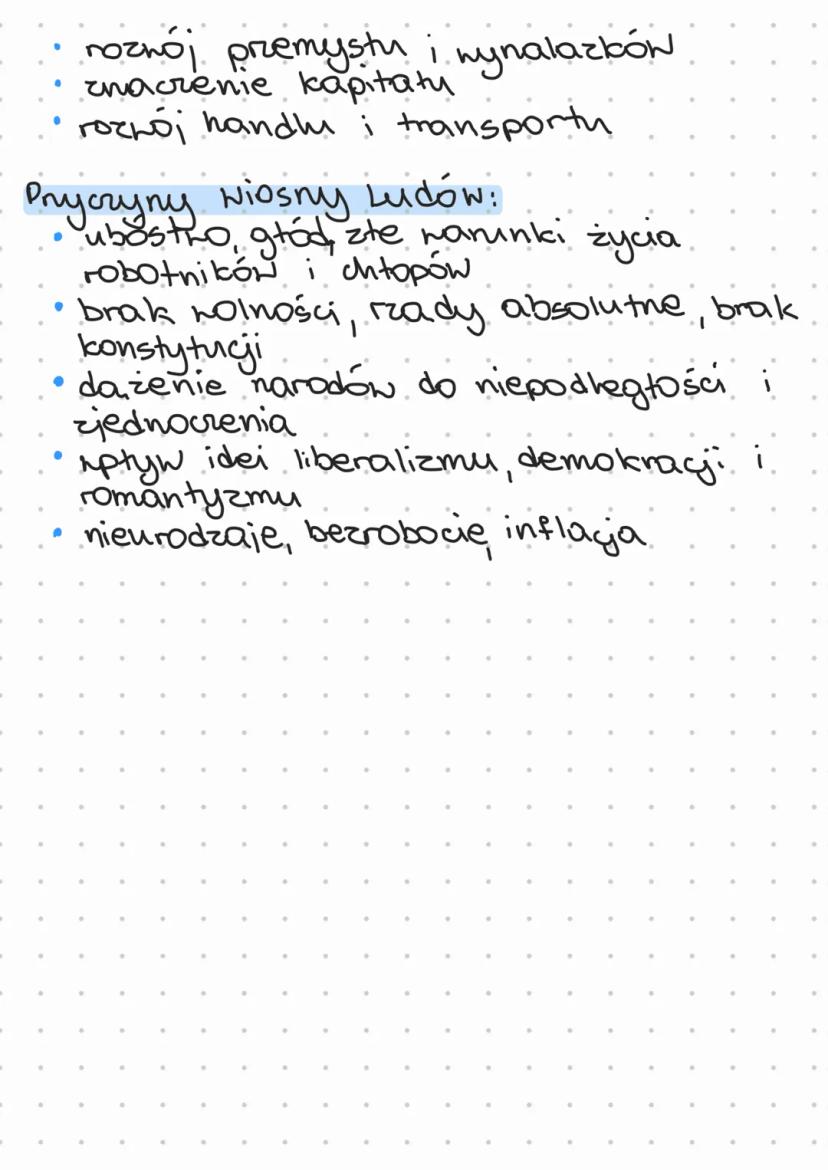 • rozwój przemysłu i wynalazków
• znaczenie kapitału
• rozwój handlu i transportu
Przyczyny Wiosny Ludów:
• ubóstwo, głód, złe warunki życia
robotników i chłopów
• brak wolności, rządy absolutne, brak
konstytucji
• dążenie narodów do niepodległości i
zjednoczenia
• wpływ idei liberalizmu, demokracji i
romantyzmu
• nieurodzaje, bezrobocie, inflacja